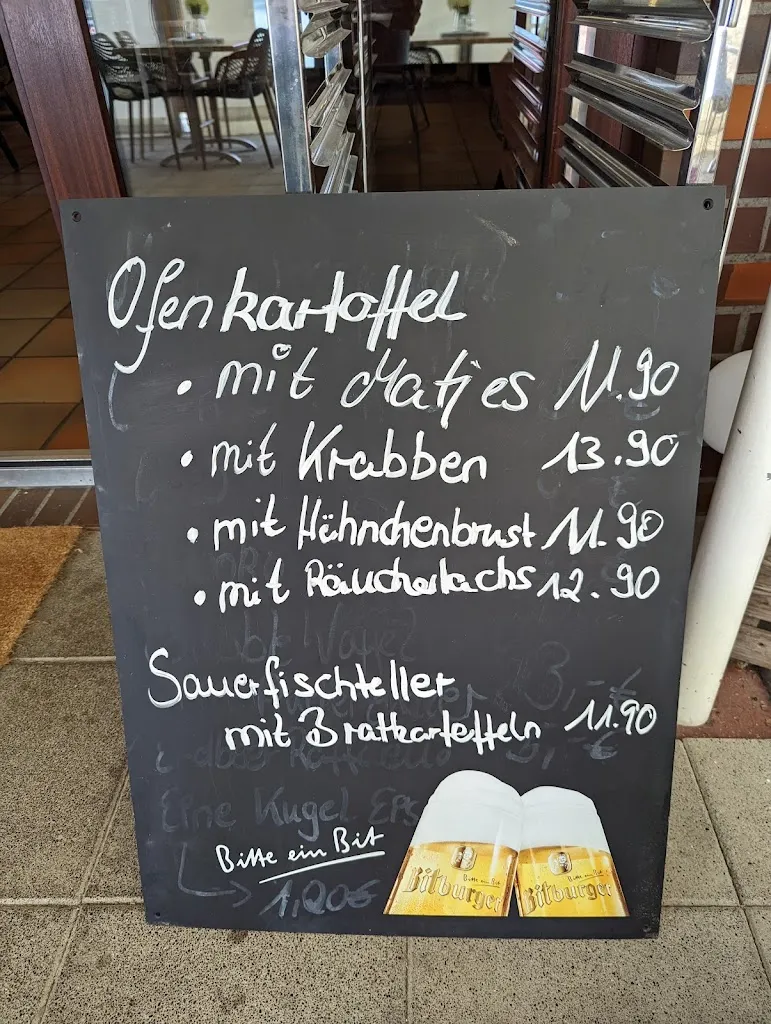 Ofenkartoffel
• mit Matjes 11.90
• mit Krabben 13.90
• mit Hähnchenbrust 11.90
• mit Räucherlachs 12.90
Sauerfischteller
mit Bratkartoffeln 11.90
Eine Kugel
Bitte ein Bit
1,20€
Bitte ein Bit
Bitburger
Bitte ein Bit
Bitburger